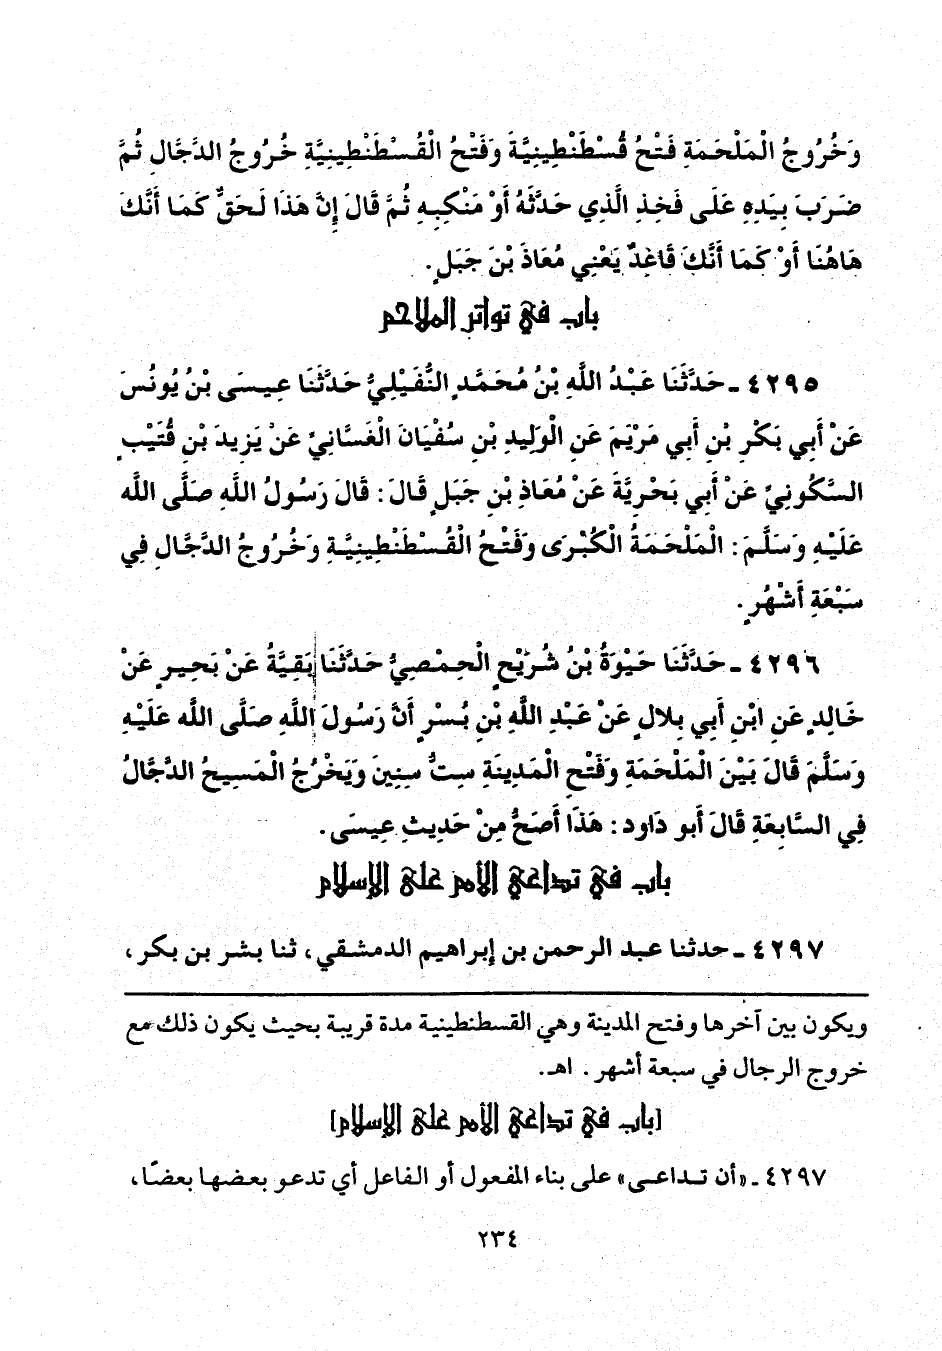 وَخُرُوجُ الْمَلْحَمَةِ فَتْحُ قُسْطَنْطِينِيَّةَ وَفَتْحُ الْقُسْطَنْطِينِيَّةِ خُرُوجُ الدَّجَّالِ ثُمَّ
ضَرَبَ بِيَدِهِ عَلَى فَخِذِ الَّذِي حَدَّثَهُ أَوْ مَنْكِبِهِ ثُمَّ قَالَ إِنَّ هَذَا لَحَقٌّ كَمَا أَنَّكَ
هَاهُنَا أَوْ كَمَا أَنَّكَ قَاعِدٌ يَعْنِي مُعَاذَ بْنَ جَبَلٍ.
باب في تواتر الملاحم
٤٢٩٥ - حَدَّثَنَا عَبْدُ اللَّهِ بْنُ مُحَمَّدٍ النُّفَيْلِيُّ حَدَّثَنَا عِيسَى بْنُ يُونُسَ
عَنْ أَبِي بَكْرِ بْنِ أَبِي مَرْيَمَ عَنِ الْوَلِيدِ بْنِ سُفْيَانَ الْغَسَّانِيِّ عَنْ يَزِيدَ بْنِ قُتَيْبٍ
السَّكُونِيِّ عَنْ أَبِي بَحْرِيَّةَ عَنْ مُعَاذِ بْنِ جَبَلٍ قَالَ: قَالَ رَسُولُ اللَّهِ صَلَّى اللَّه
عَلَيْهِ وَسَلَّمَ: الْمَلْحَمَةُ الْكُبْرَى وَفَتْحُ الْقُسْطَنْطِينِيَّةِ وَخُرُوجُ الدَّجَّالِ فِي
سَبْعَةِ أَشْهُرٍ.
٤٢٩٦ - حَدَّثَنَا حَيْوَةُ بْنُ شُرَيْحٍ الْحِمْصِيُّ حَدَّثَنَا بَقِيَّةُ عَنْ بَحِيرٍ عَنْ
خَالِدٍ عَنِ ابْنِ أَبِي بِلَالٍ عَنْ عَبْدِ اللَّهِ بْنِ بُسْرٍ أَنَّ رَسُولَ اللَّهِ صَلَّى اللَّه عَلَيْهِ
وَسَلَّمَ قَالَ بَيْنَ الْمَلْحَمَةِ وَفَتْحِ الْمَدِينَةِ سِتُّ سِنِينَ وَيَخْرُجُ الْمَسِيحُ الدَّجَّالُ
فِي السَّابِعَةِ قَالَ أَبو دَاود: هَذَا أَصَحُّ مِنْ حَدِيثِ عِيسَى.
باب في تداعي الأمم على الإسلام
٤٢٩٧ - حدثنا عبد الرحمن بن إبراهيم الدمشقي، ثنا بشر بن بكر،
ويكون بين آخرها وفتح المدينة وهي القسطنطينية مدة قريبة بحيث يكون ذلك مع
خروج الرجال في سبعة أشهر. اهـ.
[باب في تداعي الأمم على الإسلام]
٤٢٩٧ - «أن تداعى» على بناء المفعول أو الفاعل أي تدعو بعضها بعضًا،
٢٣٤